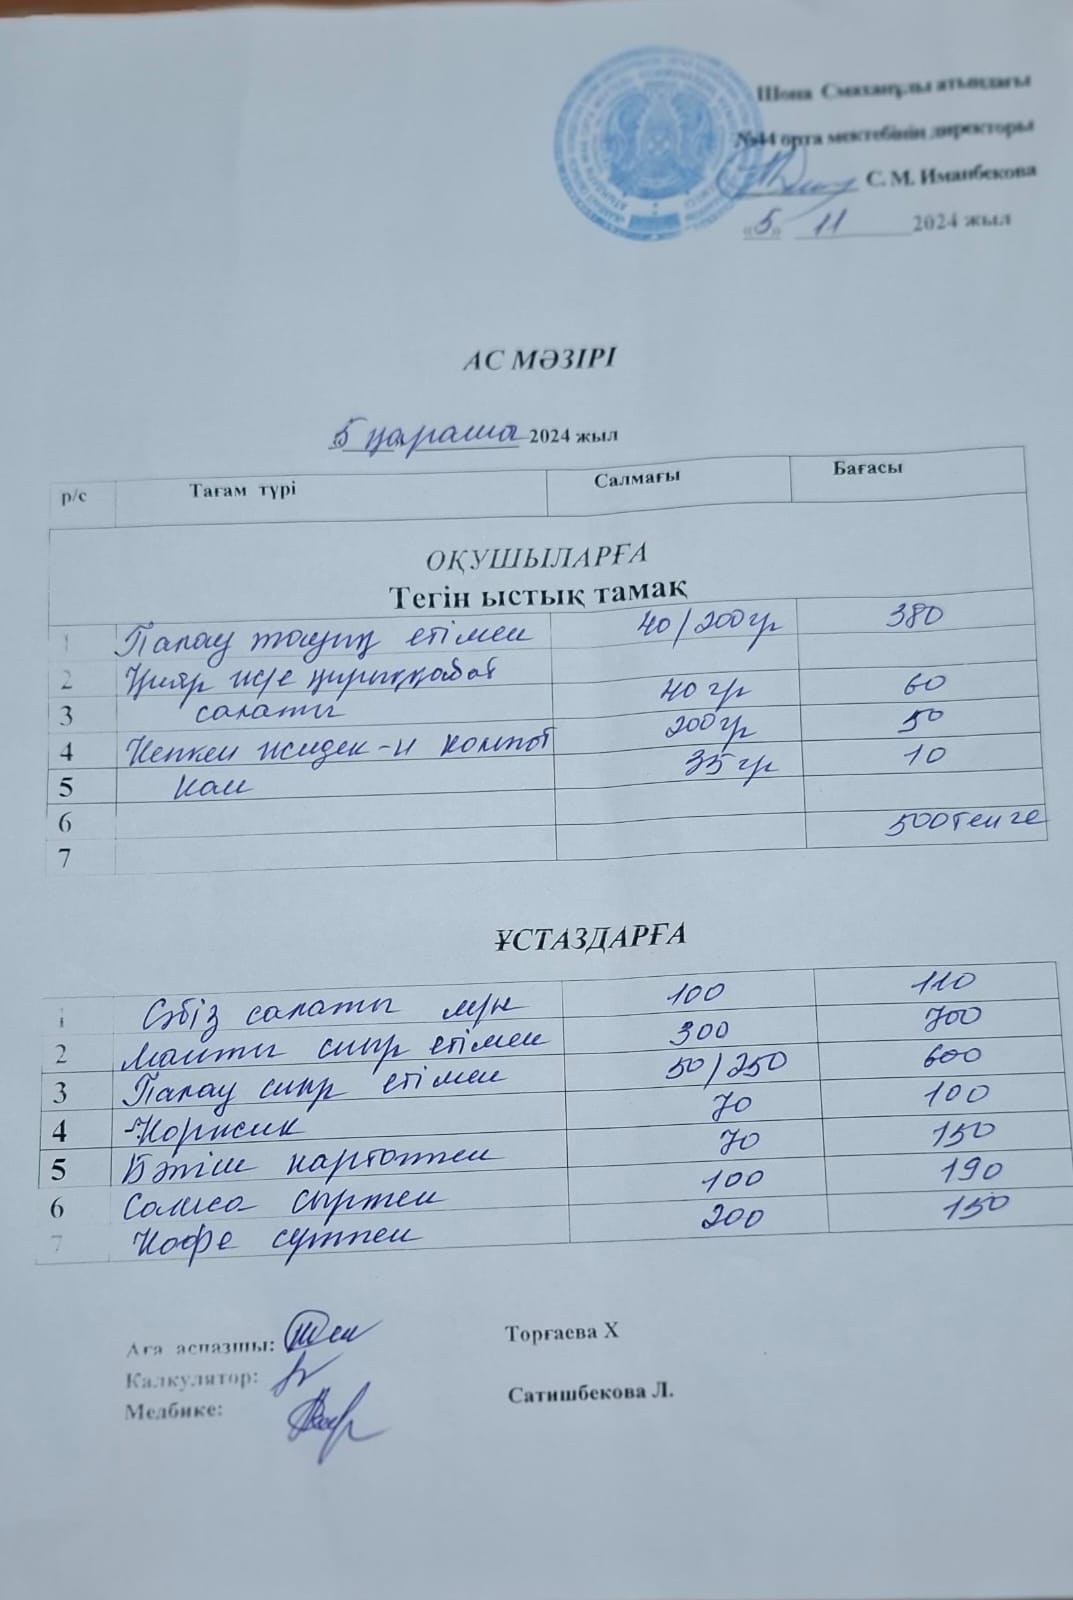 Шона Смаханұлы атындағы
№44 орта мектебінің директоры
С. М. Иманбекова
«5» 11 2024 жыл
АС МӘЗІРІ
5 қараша 2024 жыл
р/с Тағам түрі Салмағы Бағасы
ОҚУШЫЛАРҒА
Тегін ыстық тамақ
1 Палау тауық етімен 40/200гр 380
2 Қияр және қырыққабат
3 салаты 40 гр 60
4 Кепкен жидек-н компот 200гр 50
5 Нан 35 гр 10
6
7 500тенге
ҰСТАЗДАРҒА
1 Сәбіз салаты 100 110
2 Манты сиыр етімен 300 700
3 Палау сиыр етімен 50/250 600
4 Коржик 70 100
5 Бәліш картоппен 70 150
6 Самса сыртен 100 190
7 Кофе сүтпен 200 150
Аға аспазшы: Торгаева Х
Калкулятор:
Медбике: Сатишбекова Л.